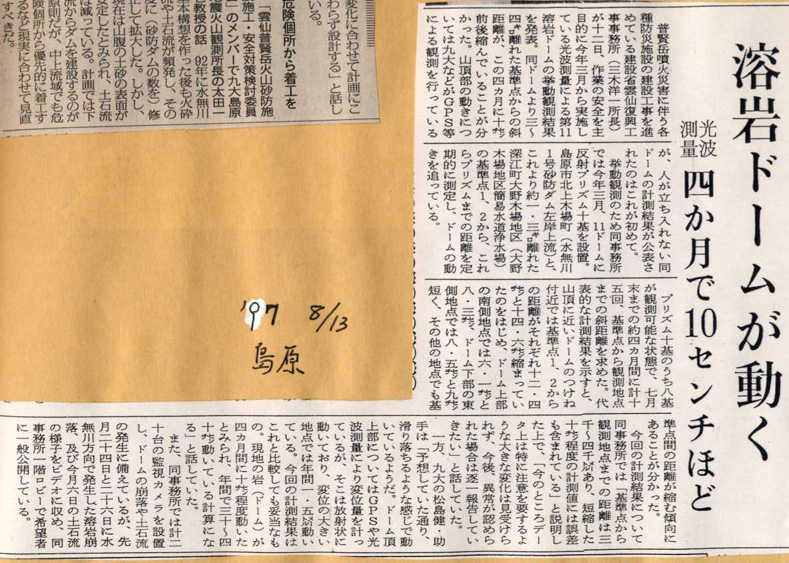 溶岩ドームが動く
光波測量
四か月で10センチほど
普賢岳噴火災害に伴う各
種防災施設の建設工事を進
めている建設省雲仙復興工
事事務所（三木洋一所長）
が十二日、作業の安全を主
目的に今年三月から実施し
ている光波測量による第11
溶岩ドームの挙動観測結果
を発表。同ドームより三～
四㌔離れた基準点からの斜
距離が、この四カ月に十㌢
前後縮んでいることが分
かった。山頂部の動きにつ
いては九大などがGPS等
による観測を行っている
が、人が立ち入れない同
ドームの計測結果が公表さ
れたのはこれが初めて。
挙動観測のため同事務所
では今年三月、11ドームに
反射プリズム十基を設置。
島原市北上木場町（水無川
1号砂防ダム左岸上流）と、
これより約一・三㌔離れた
深江町大野木場地区（大野
木場地区簡易水道浄水場）
の基準点1、2から、これ
らプリズムまでの距離を定
期的に測定し、ドームの動
きを追っている。
プリズム十基のうち八基
が観測可能な状態で、七月
末までの約四カ月間に計十
五回、基準点から観測地点
までの斜距離を求めた。代
表的な計測結果を示すと、
山頂に近いドームのつけね
付近では基準点1、2から
の距離がそれぞれ十二・四
㌢と十四・六㌢縮まってい
たのをはじめ、ドーム上部
の南側地点では六・一㌢と
八・三㌢、ドーム下部の東
側地点では八・五㌢と九㌢
短く、その他の地点でも基
準点間の距離が縮む傾向に
あることが分かった。
今回の計測結果について
同事務所では「基準点から
観測地点までの距離は三
千～四千㍍あり、短縮した
十㌢程度の計測値には誤差
も含まれている」と説明し
た上で、「今のところデー
タ上は特に注意を要するよ
うな大きな変化は見受けら
れず、今後、異常が認めら
れた場合は逐一報告してい
きたい」と話していた。
一方、九大の松島健・助
手は「予想していた通り、
滑り落ちるような感じで動
いているようだ。ドーム頂
上部についてはGPSや光
波測量により変位量を計っ
ているが、そこは放射状に
動いており、変位の大きい
地点では年間一・五㍍動い
ている。今回の計測結果は
これと比較しても妥当なも
の。現他の岩（ドーム）が
四カ月間に十㌢程度動いた
とみられ、年間で三十～四
十㌢動いている計算にな
る」と話していた。
また、同事務所では計二
十台の監視カメラを設置
し、ドームの崩落や土石流
の発生に備えているが、先
月二十四日と二十六日に水
無川方向で発生した溶岩崩
落、及び今月六日の土石流
の様子をビデオに収め、同
事務所一階ロビーで希望者
に一般公開している。
変化に合わせて計画にこ
わらず設計する」と話し
いる。
危険個所から着工を
「雲仙普賢岳火山砂防施
施工・安全対策検討委員
」のメンバーで九大島原
震火山観測所長の太田一
教授の話　92年に水無川
本構想を作った後も火砕
や土石流が頻発し、その
（砂防ダムの数を）修
して拡大した。しかし、
現在は山腹の土砂の表面が
安定したとみられ、土石流
は減っている。計画では下
流からダムを建設するのが
原則だが、中上流域でも危
険個所から優先的に着工す
るなど現実に合わせて見直
すべきだ。
'97 8/13
島原